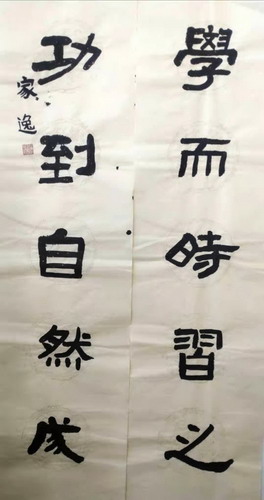 學而時習之
功到自然成
家逸